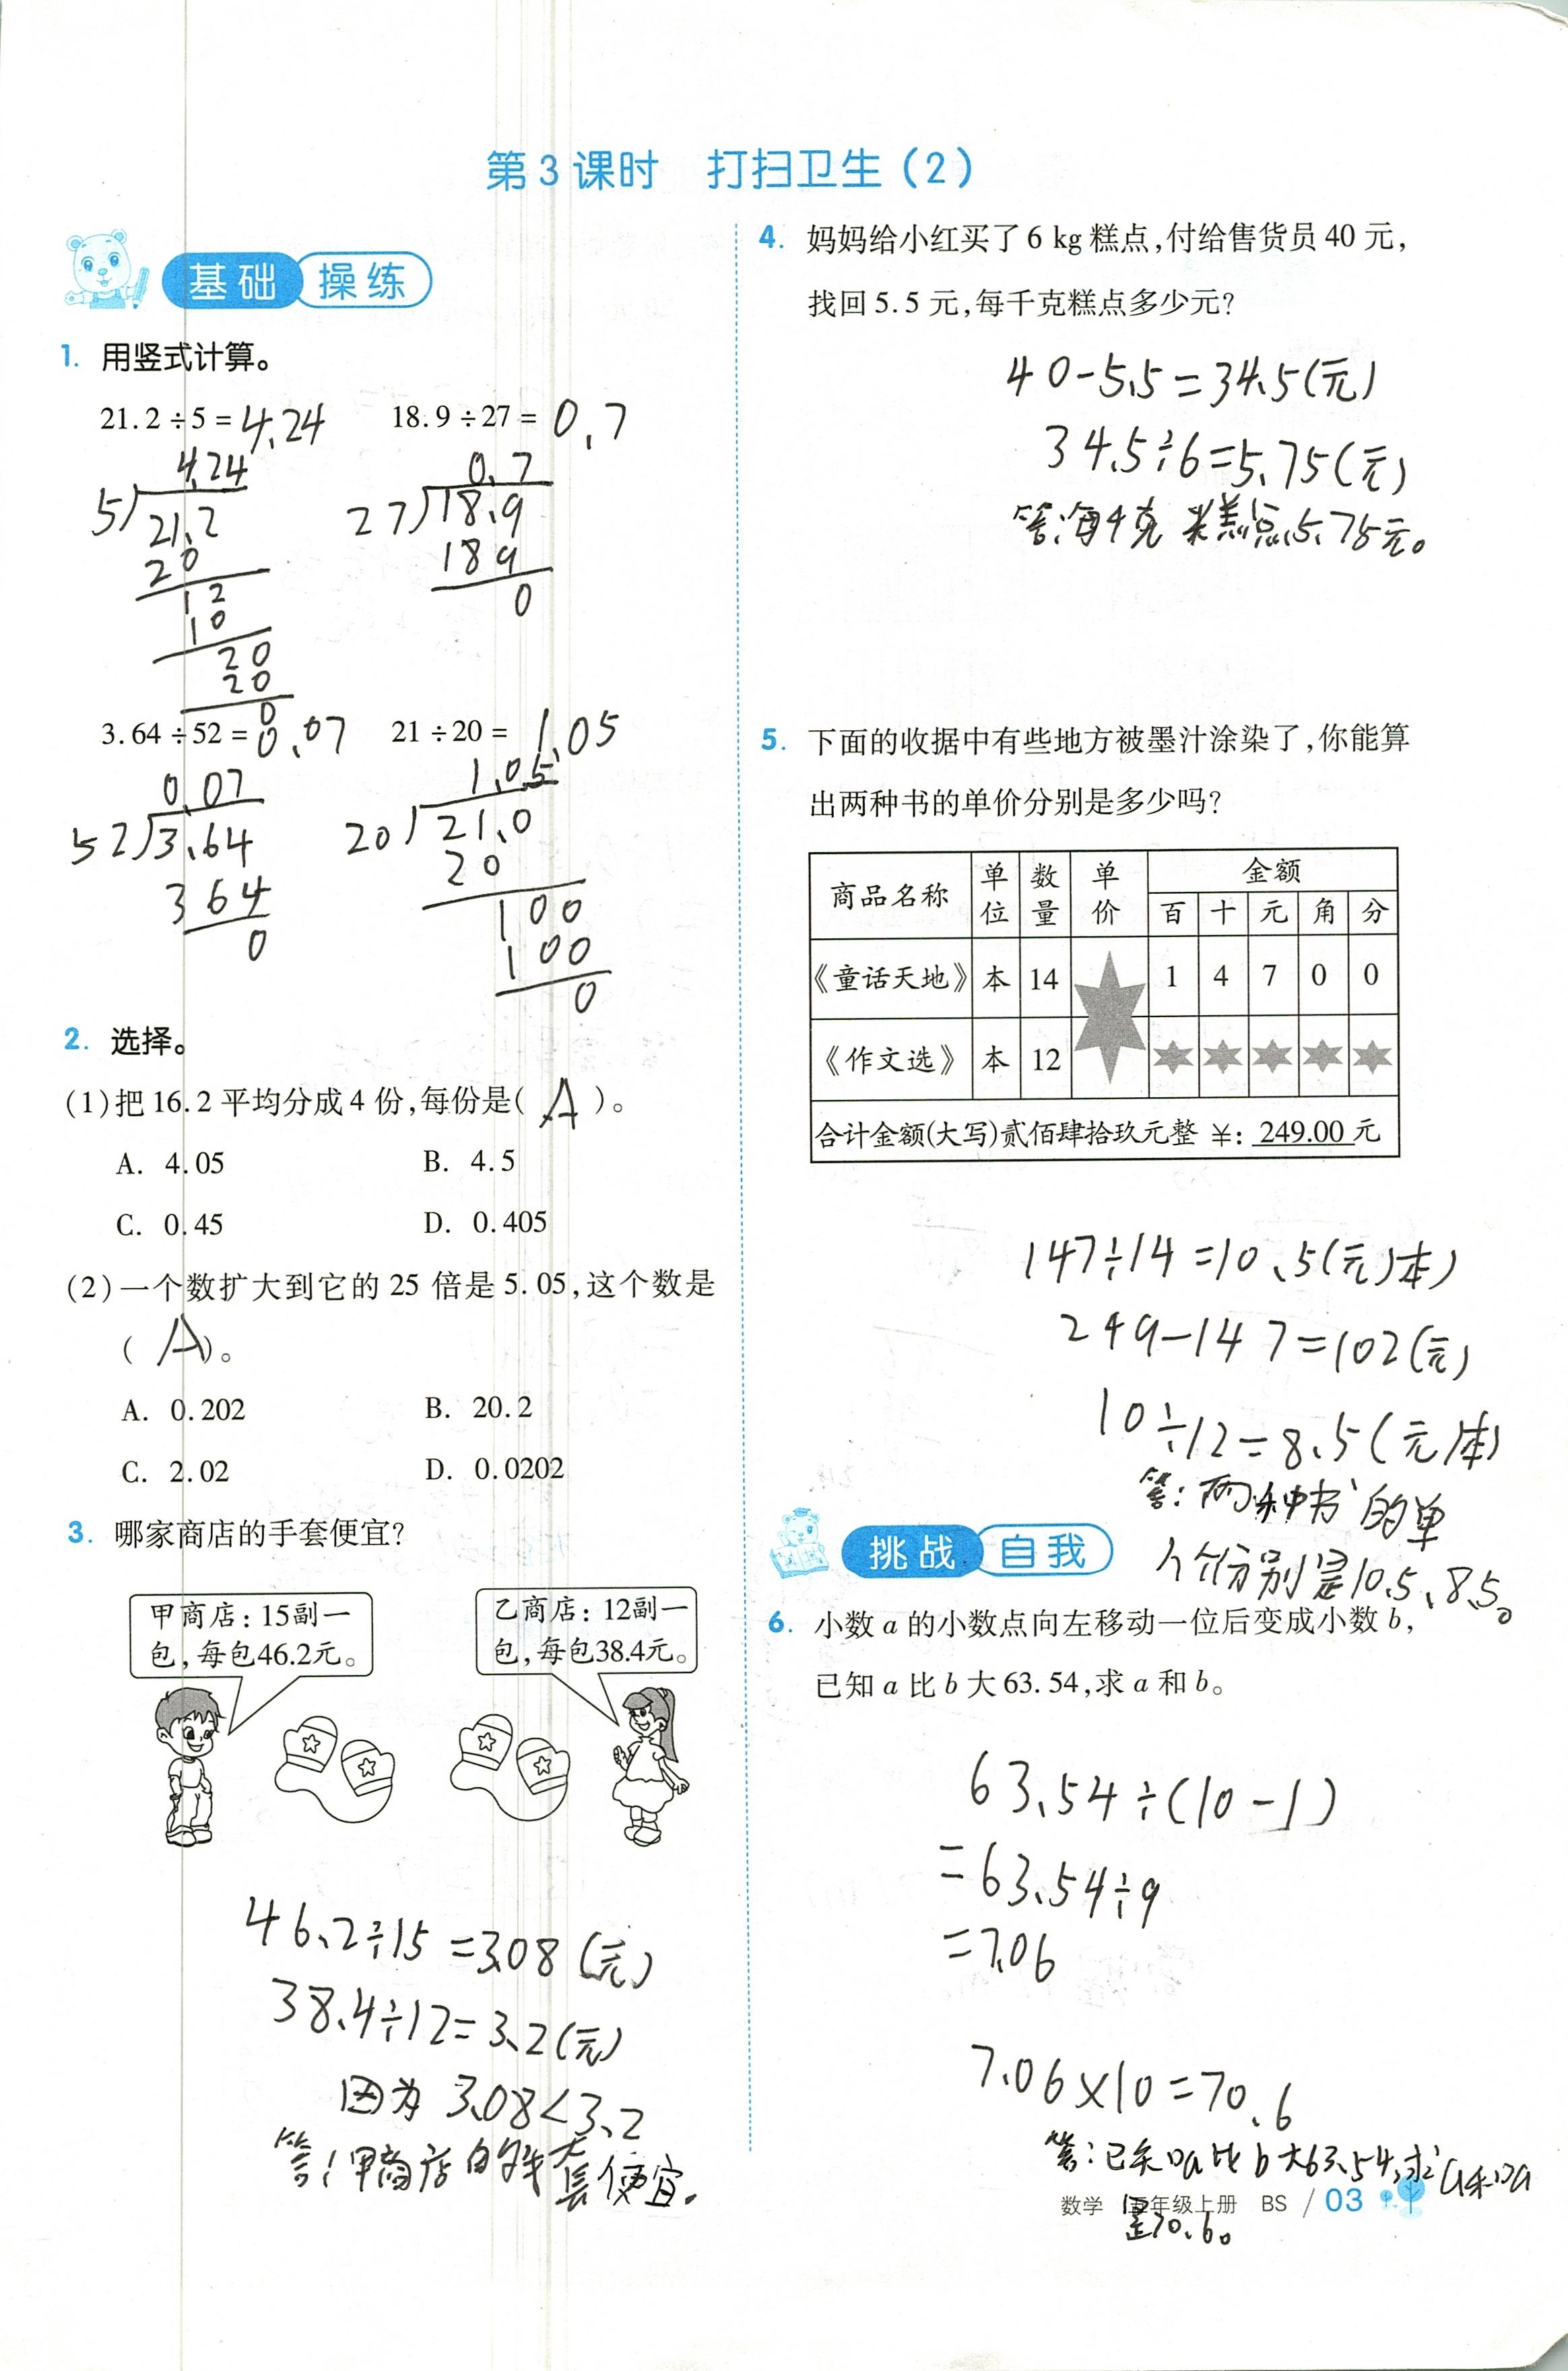 第3课时 打扫卫生(2)
基础 操练
1. 用竖式计算。
21.2÷5=4.24 18.9÷27=0.7
4.24
5 21.2
20
12
10
20
20
0
0.7
27 18.9
189
0
3.64÷52=0.07 21÷20=1.05
0.07
52 3.64
364
0
1.05
20 21.0
20
100
100
0
2. 选择。
(1)把16.2平均分成4份,每份是( A )。
A. 4.05 B. 4.5
C. 0.45 D. 0.405
(2)一个数扩大到它的25倍是5.05,这个数是
( A )。
A. 0.202 B. 20.2
C. 2.02 D. 0.0202
3. 哪家商店的手套便宜?
甲商店:15副一
包,每包46.2元。
乙商店:12副一
包,每包38.4元。
46.2÷15=3.08(元)
38.4÷12=3.2(元)
因为 3.08<3.2
答:甲商店的手套便宜。
4. 妈妈给小红买了6 kg糕点,付给售货员40元,
找回5.5元,每千克糕点多少元?
40-5.5=34.5(元)
34.5÷6=5.75(元)
答:每千克糕点5.75元。
5. 下面的收据中有些地方被墨汁涂染了,你能算
出两种书的单价分别是多少吗?
商品名称 单位 数量 单价 金额
百 十 元 角 分
《童话天地》 本 14 1 4 7 0 0
《作文选》 本 12
合计金额(大写)贰佰肆拾玖元整 ¥: 249.00 元
147÷14=10.5(元/本)
249-147=102(元)
10÷12=8.5(元/本)
答:两种书的单
价分别是10.5、8.5。
挑战 自我
6. 小数a的小数点向左移动一位后变成小数b,
已知a比b大63.54,求a和b。
63.54÷(10-1)
=63.54÷9
=7.06
7.06×10=70.6
答:已知a比b大63.54,求a和a
是70.6。
数学 五年级上册 BS / 03